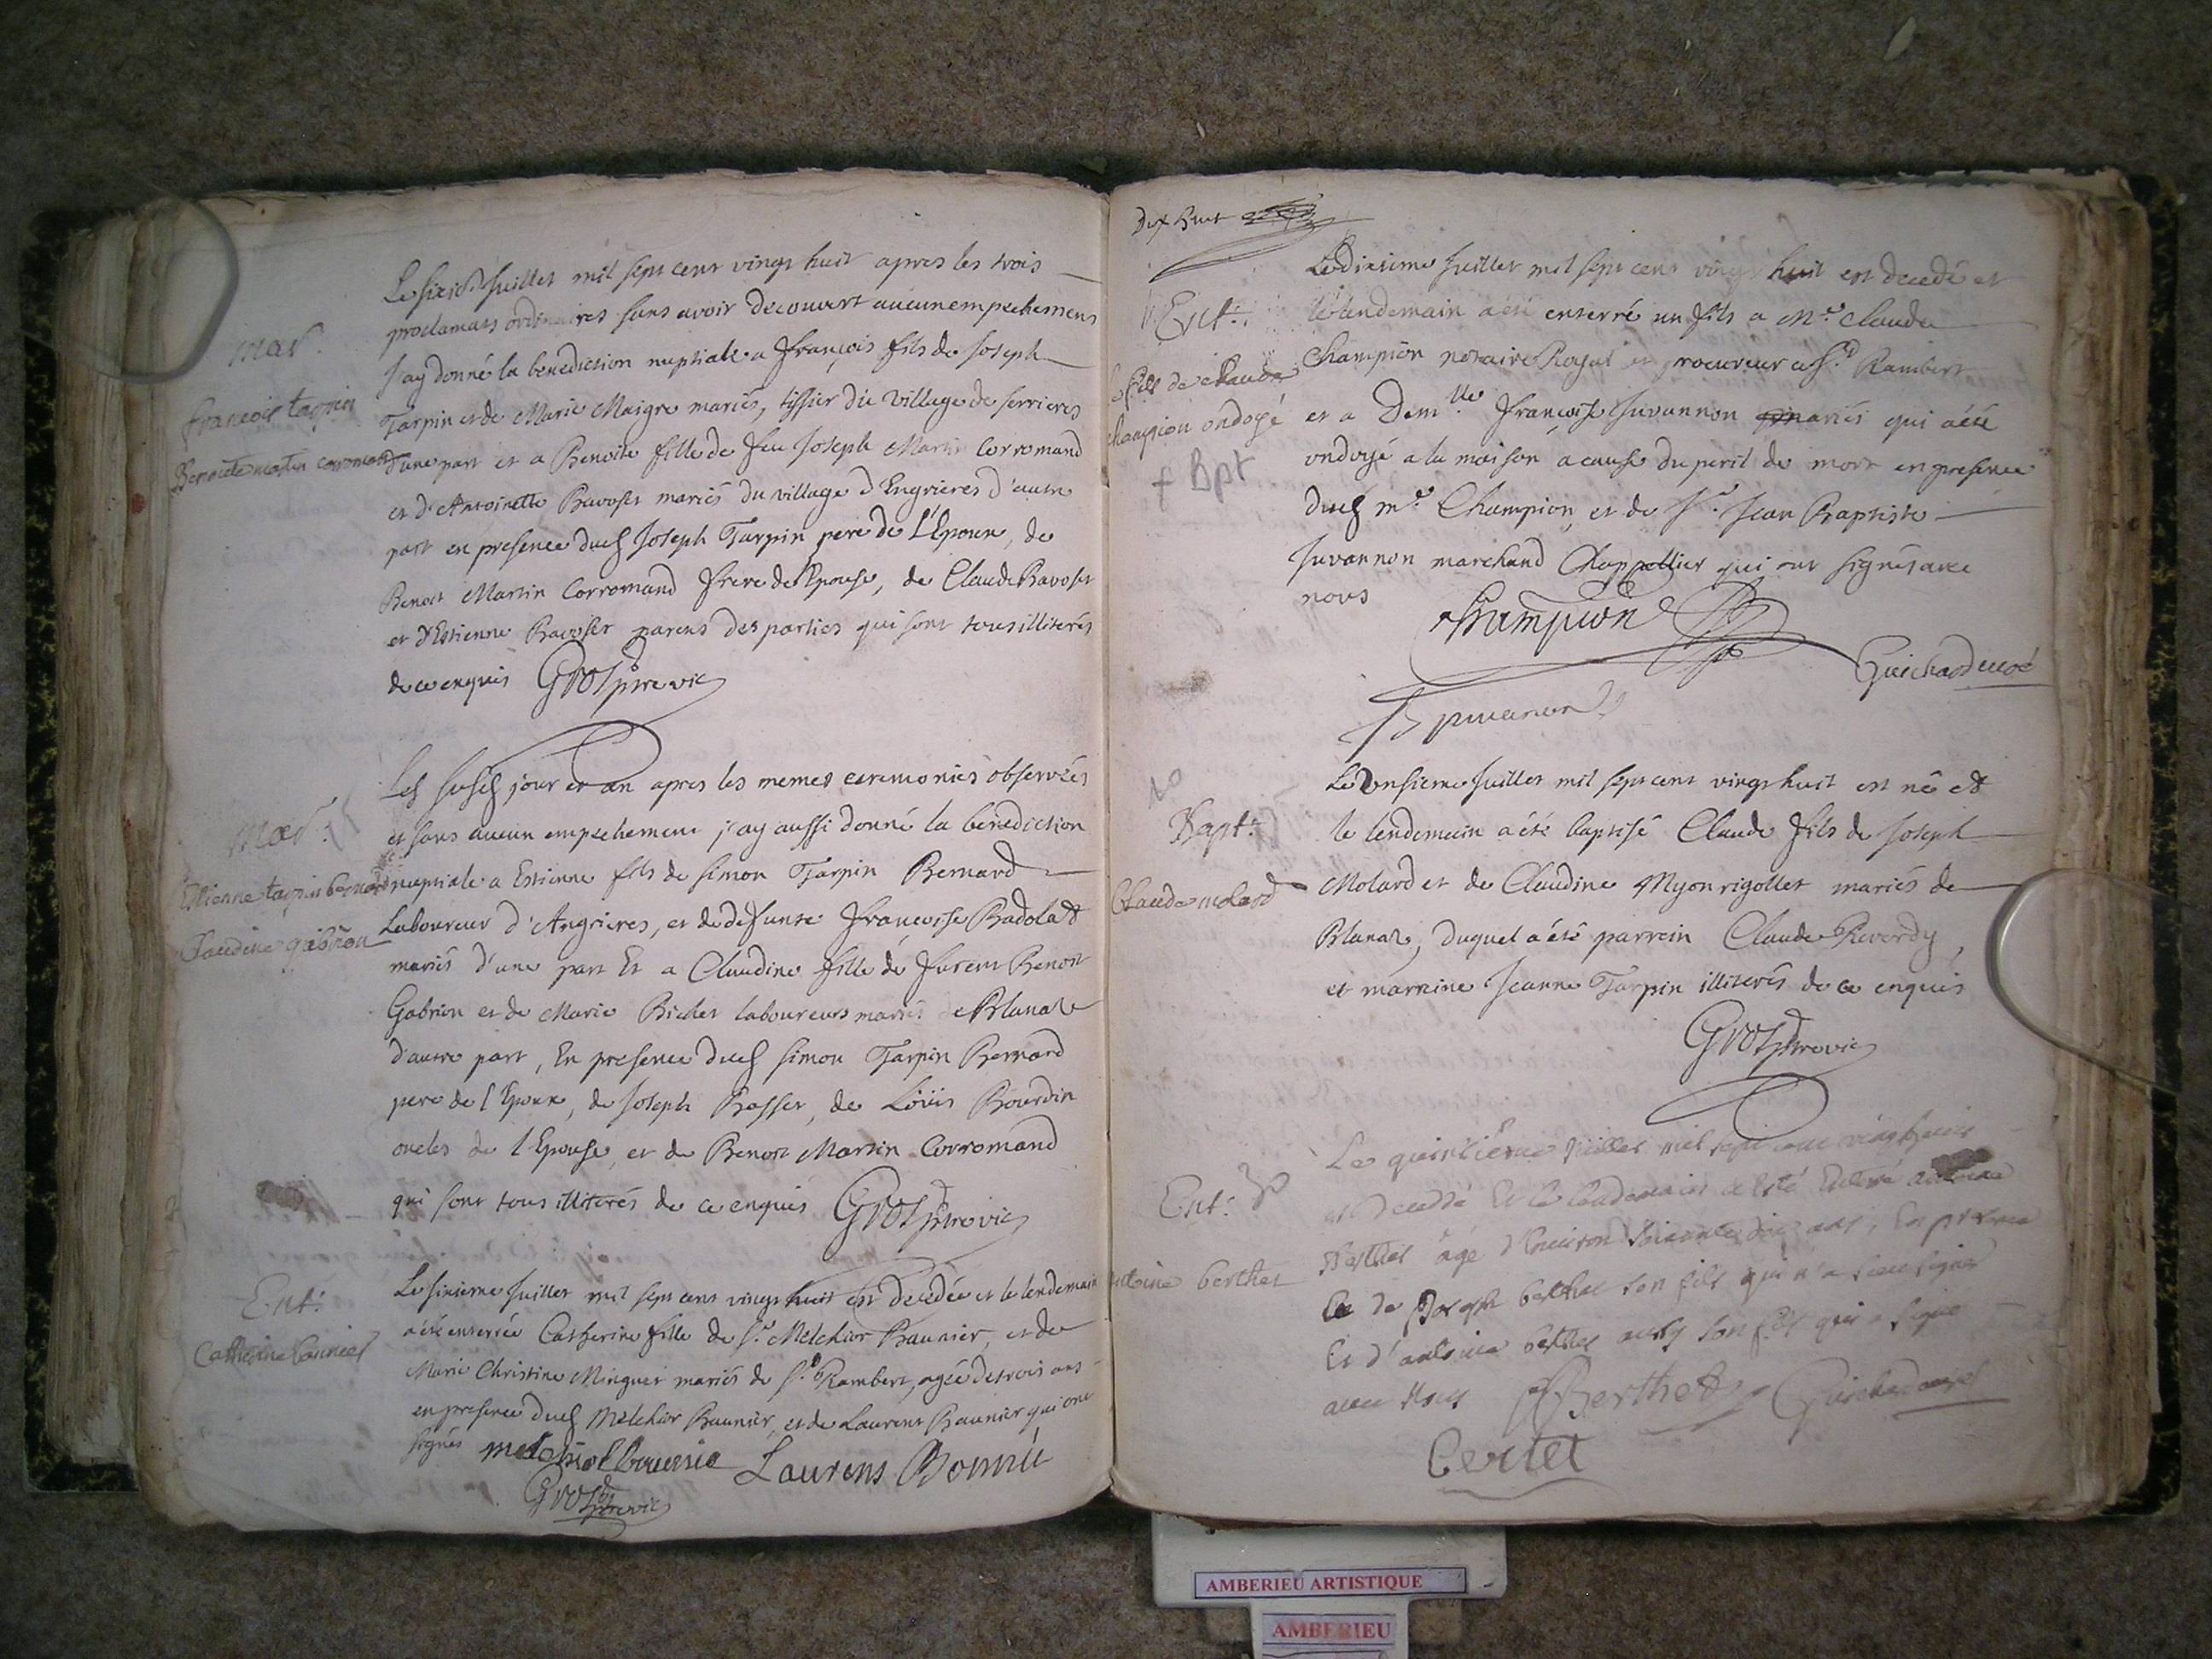 mar.
françois tarpin
Benoite martin corromand
Le sixie. Juillet mil sept cent vingt huit apres les trois
proclamats ordinaires sans avoir decouvert aucun empechement
J'ay donné la benediction nuptiale a françois fils de Joseph
Tarpin et de Marie Maigre mariés, tissier du village de serrieres
d'une part et a Benoite fille de feu Joseph Martin Corromand
et d'Antoinette Bavoset mariés du village d'Engrieres d'autre
part en presence dud Joseph Tarpin pere de L'Epoux, de
Benoit Martin Corromand frere de l'Epouse, de Claude Bavoset
et d'Estienne Bavoset parens des parties qui sont tous illiterés
de ce enquis Grospretre vic
mar.
Estienne tarpin bernard
Claudine gabrion
Led susd jour et an apres les memes ceremonies observées
et sans aucun empechement j'ay aussi donné la benediction
nuptiale a Estienne fils de Simon Tarpin Bernard
Laboureur d'Angrieres, et de defunte françoise Badolat
mariés d'une part Et a Claudine fille de furent Benoit
Gabrion et de Marie Bichet laboureurs mariés de Blanaz
d'autre part, En presence dud Simon Tarpin Bernard
pere de l'Epoux, de Joseph Basset, de Loüis Bourdin
oncles de l'Epouse, et de Benoit Martin Corromand
qui sont tous illiterés de ce enquis
Ent.
Catherine baunier
Le sixieme Juillet mil sept cent vingt huit est decedée et le lendemain
a été enterrée Catherine fille de Sr. Melchior Baunier, et de
Marie Christine Minguet mariés de St. Rambert, agée de trois ans
en presence dud Melchior Baunier, et de Laurent Baunier qui ont
signés melchiol baunie Laurens Bonnié
Dix huit
Ent.
fils de Claude
champion ondoyé
+ Bpt
Le dixieme Juillet mil sept cent vingt huit est decedé et
le lendemain a été enterré un fils a Me. Claude
Champion notaire Royal et procureur a St. Rambert
et a Demlle françoise Juvannon mariés qui a été
ondoyé a la maison a cause du peril de mort en presence
dud me. Champion, et de Sr. Jean Baptiste
Juvannon marchand Chappellier qui ont signés avec
nous Champion
Guichard curé
Bapt.
Claude molard
Le onsieme Juillet mil sept cent vingt huit est né et
le lendemain a été baptisé Claude fils de Joseph
Molard et de Claudine Myon rigollet mariés de
Blanaz, duquel a été parrein Claude Reverdy,
et marreine Jeanne Tarpin illiterés de ce enquis
Ent.
antoine berthet
Le quinzieme Juillet mil sept cent vingt huit
est decedé Et le lendemain a esté Enterré antoine
Berthet agé d'Environ soixante dix ans, En presence
de Joseph berthet son fils qui n'a sceu signer
Et d'antoine berthet aussy son fils qui a signé
avec Nous Berthet Guichard curé
Bertet
AMBERIEU ARTISTIQUE
AMBERIEU